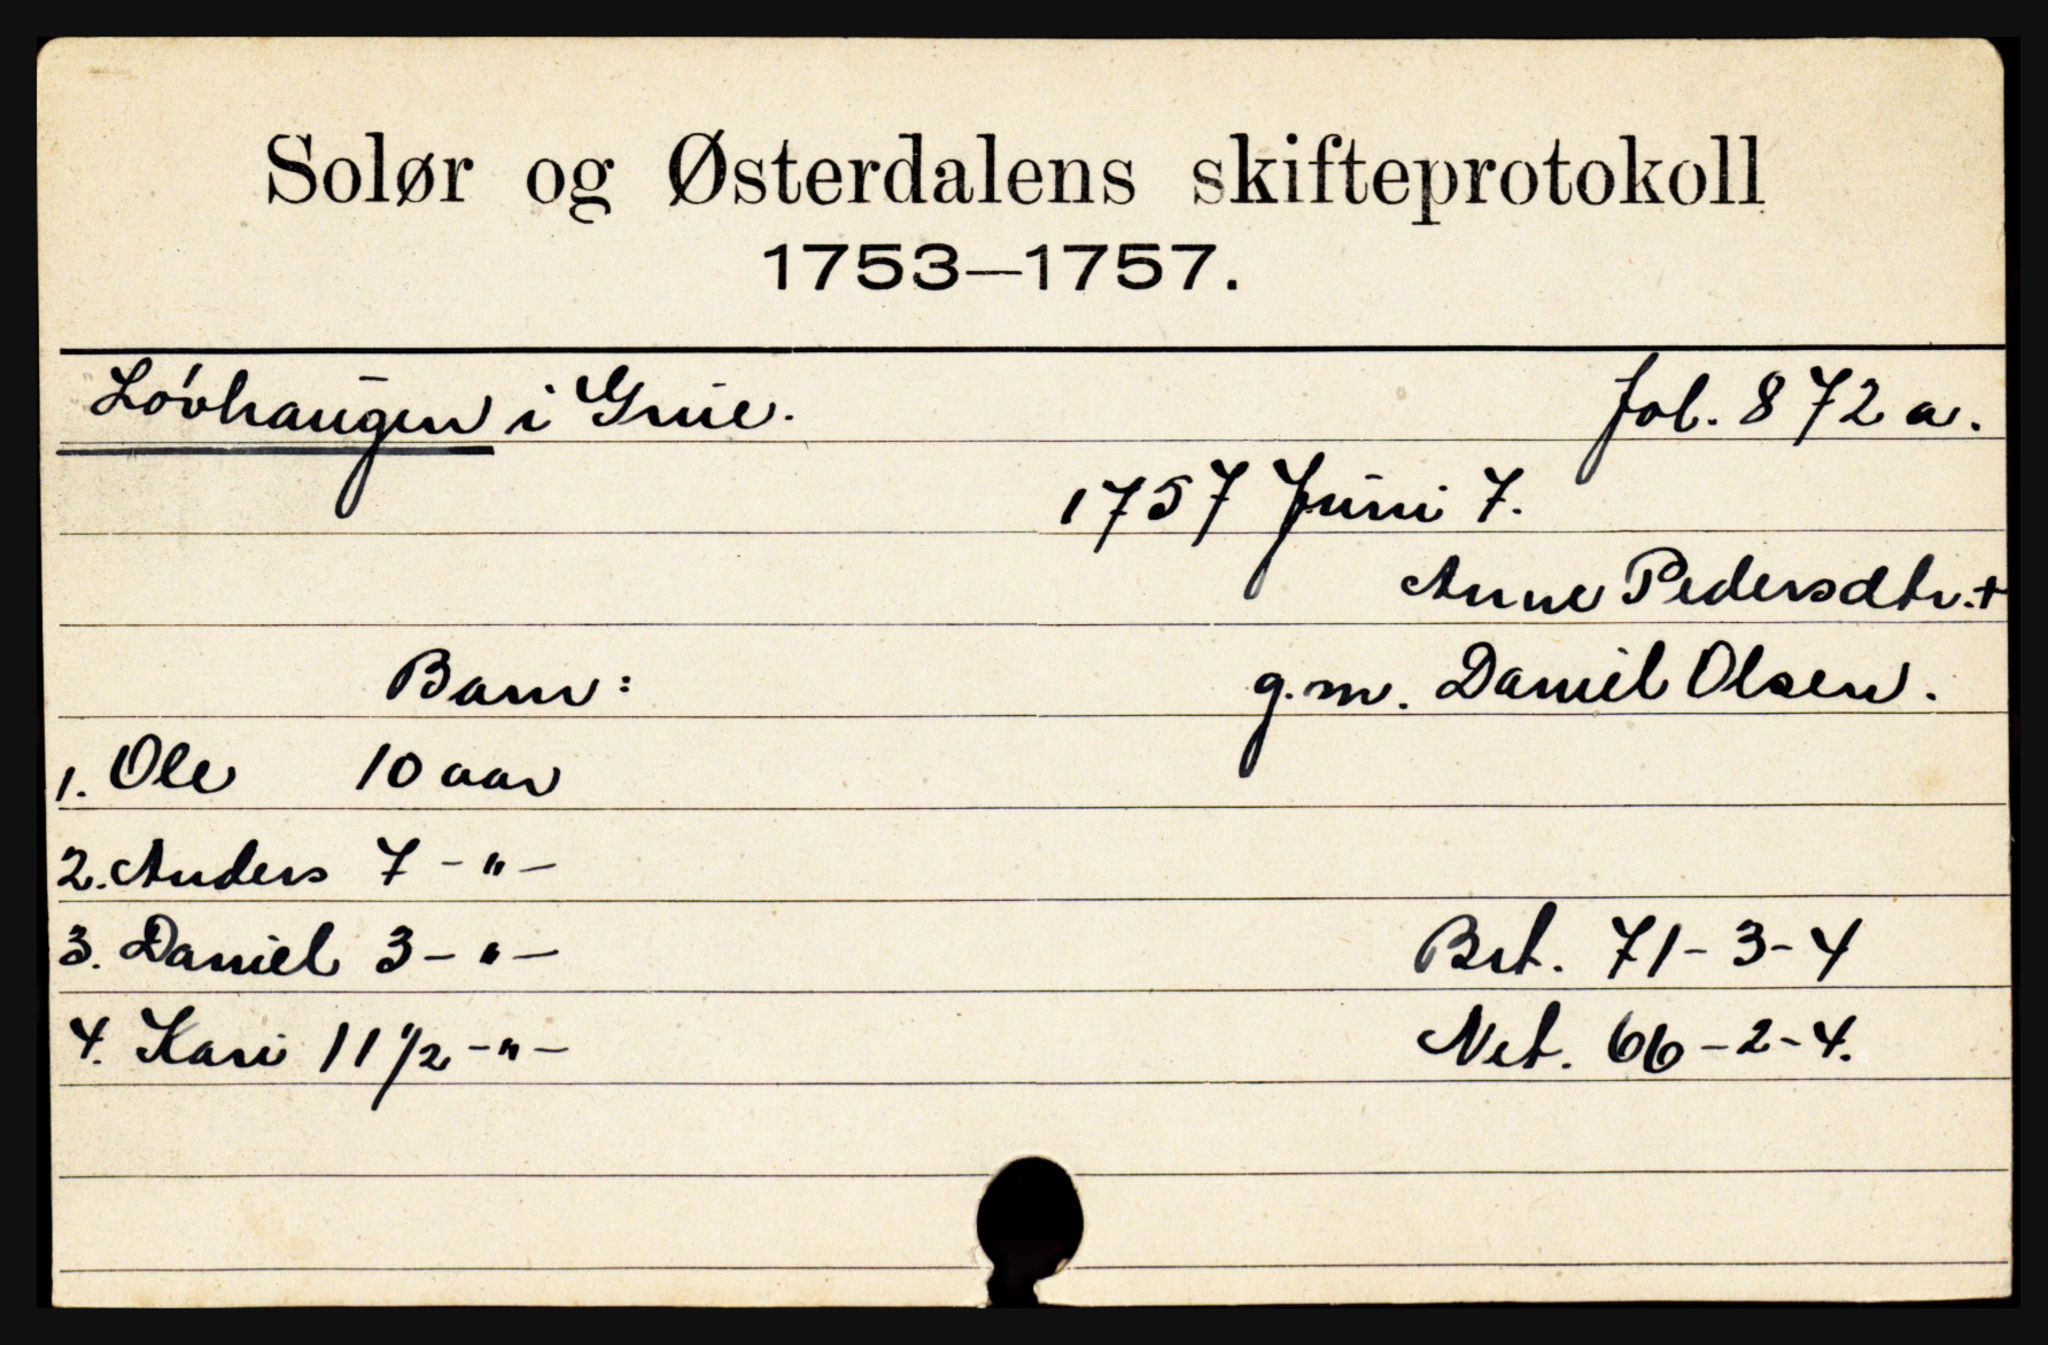 Solør og Østerdalens skifteprotokoll
1753—1757.
Lövhaugen i Grue. fol. 872 a.
1757 Juni 7.
Anne Pedersdtr. +
Barn: g.m. Daniel Olsen.
1. Ole 10 aar
2. Anders 7 - " -
3. Daniel 3 - " -  Brt. 71-3-4
4. Kari 11 1/2 - " -  Net. 66-2-4.